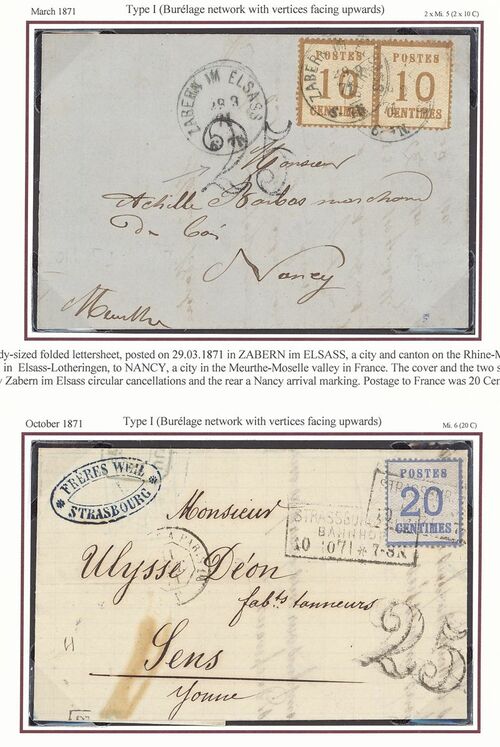 March 1871
Type I (Burélage network with vertices facing upwards)
2 x Mi. 5 (2 x 10 C)
ZABERN IM ELSASS
29 3
71
POSTES
10
CENTIMES
POSTES
10
CENTIMES
ZABERN IM ELSASS
25
Monsieur
Achille marchand
de
Nancy
Meurthe
dy-sized folded lettersheet, posted on 29.03.1871 in ZABERN im ELSASS, a city and canton on the Rhine-M
in Elsass-Lotheringen, to NANCY, a city in the Meurthe-Moselle valley in France. The cover and the two s
y Zabern im Elsass circular cancellations and the rear a Nancy arrival marking. Postage to France was 20 Cen
October 1871
Type I (Burélage network with vertices facing upwards)
Mi. 6 (20 C)
FRÈRES WEIL
STRASBOURG
POSTES
20
CENTIMES
STRASSBURG
BAHNHOF
10 10 71 * 7-8 N
Monsieur
Ulysse Déon
fabts tanneurs
Sens
Yonne
25